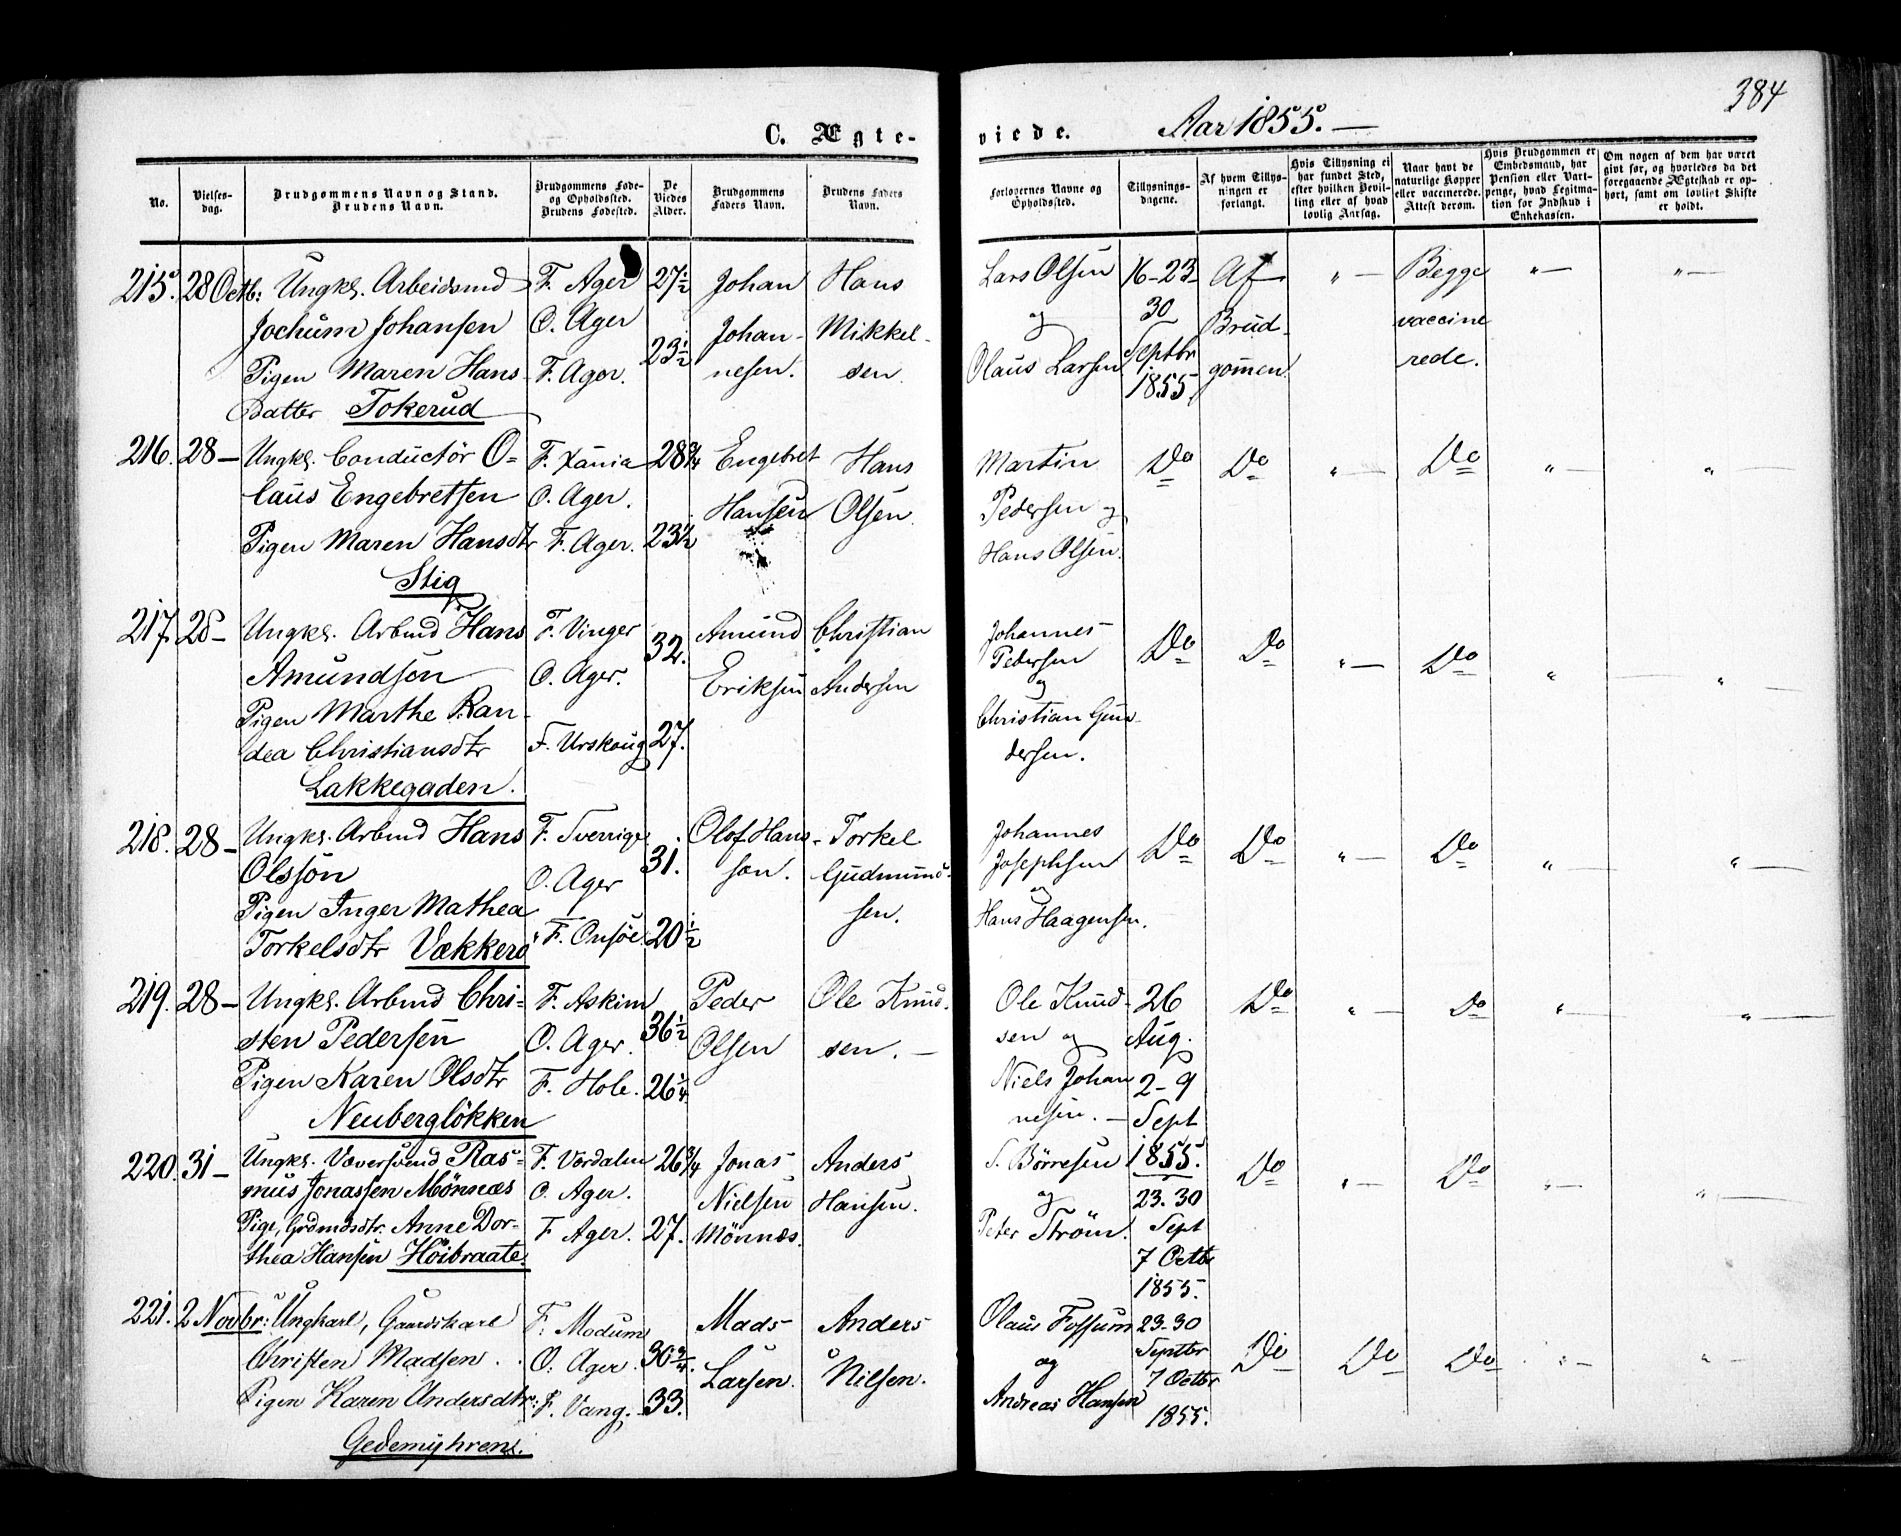 384
C. Ægteviede. Aar 1855.
No.
Vielsesdag.
Brudgommens Navn og Stand.
Brudens Navn.
Brudgommens Føde-
og Opholdssted.
Brudens Fødested.
De
Viedes
Alder.
Brudgommens
Faders Navn.
Brudens Faders
Navn.
Forlovernes Navne og
Opholdssted.
Tillysnings-
dagene.
Af hvem Tillys-
ningen er
forlangt.
Hvis Tillysning ei
har fundet Sted,
efter hvilken Bevil-
ling eller af hvad
lovlig Aarsag.
Naar havt de
naturlige Kopper
eller vaccinerede.
Attest derom.
Hvis Brudgommen er
Embedsmand, har
Pension eller Vart-
penge, hvad Legitima-
tion for Indskud i
Enkekassen.
Om nogen af dem har været
givt før, og hvorledes da det
foregaaende Ægteskab er op-
hørt, samt om lovligt Skifte
er holdt.
215. 28 Octb: Ungkl. Arbeidsmd
Jochum Johansen
Pigen Maren Hans
Datter Tokerud
F. Ager
O. Ager
F. Ager.
27½
23½
Johan
Johan-
nesen.
Hans
Mikkel-
sen.
Lars Olsen
og
Olaus Larsen
16-23
30
Septbr
1855.
Af
Brud-
gommen.
" —
Begge
vaccine
rede.
" —
" —
216. 28 — Ungkl. Conductør O-
laus Engebretsen
Pigen Maren Hansdtr
Stig
F. Xania
O. Ager.
F. Ager.
28¾
23½
Engebret
Hansen
Hans
Olsen.
Martin
Pedersen og
Hans Olsen.
Do
Do
" —
Do
" —
" —
217. 28 — Ungkl. Arbmd Hans
Amundsøn
Pigen Marthe Ran-
dea Christiansdtr
Lakkegaden.
F. Vinger
O. Ager.
F. Urskoug
32.
27.
Amund
Eriksen
Christian
Andersen
Johannes
Pedersen
og
Christian Gun-
dersen.
Do
Do
" —
Do
" —
" —
218. 28 — Ungkl. Arbmd Hans
Olssøn
Pigen Inger Mathea
Torkelsdtr Vækkerø
F. Sverrige
O. Ager
F. Onsøe
31.
20½
Olof Hans-
søn.
Torkel
Gudmund-
sen.
Johannes
Josephsen
og
Hans Haagensen.
Do
Do
" —
Do
" —
" —
219. 28 — Ungkl. Arbmd Chri-
sten Pedersen
Pigen Karen Olsdtr
Neubergløkken
F. Askim
O. Ager.
F. Hole.
36½
26¼
Peder
Olsen
Ole Knud-
sen. —
Ole Knud-
sen og
Niels Johan
nesen. —
26
Aug.
2-9
Sept
1855.
Do
" —
Do
" —
" —
220. 31 — Ungkl. Væversvend Ras-
mus Jonassen Mønnæs
Pige, Grdmdsdtr. Anne Dor-
thea Hansen Høibraate.
F. Værdalen
O. Ager.
F. Ager.
26¾
27.
Jonas
Nielsen
Mønnæs.
Anders
Hansen.
S. Børresen
og
Peter Strøm.
23.30
Sept
7 Octbr
1855.
Do
" —
Do
" —
" —
221. 2 Novbr: Ungkarl, Gaardskarl
Christen Madsen.
Pigen Karen Andersdtr:
Gedemyhren.
F: Modum
O: Ager.
F. Vang.
30¾.
33.
Mads
Larsen.
Anders
Nilsen.
Olaus Fossum
og
Andreas Hansen
23-30
Septbr
7 Octbr
1855.
Do
Do
Do
" —
" —